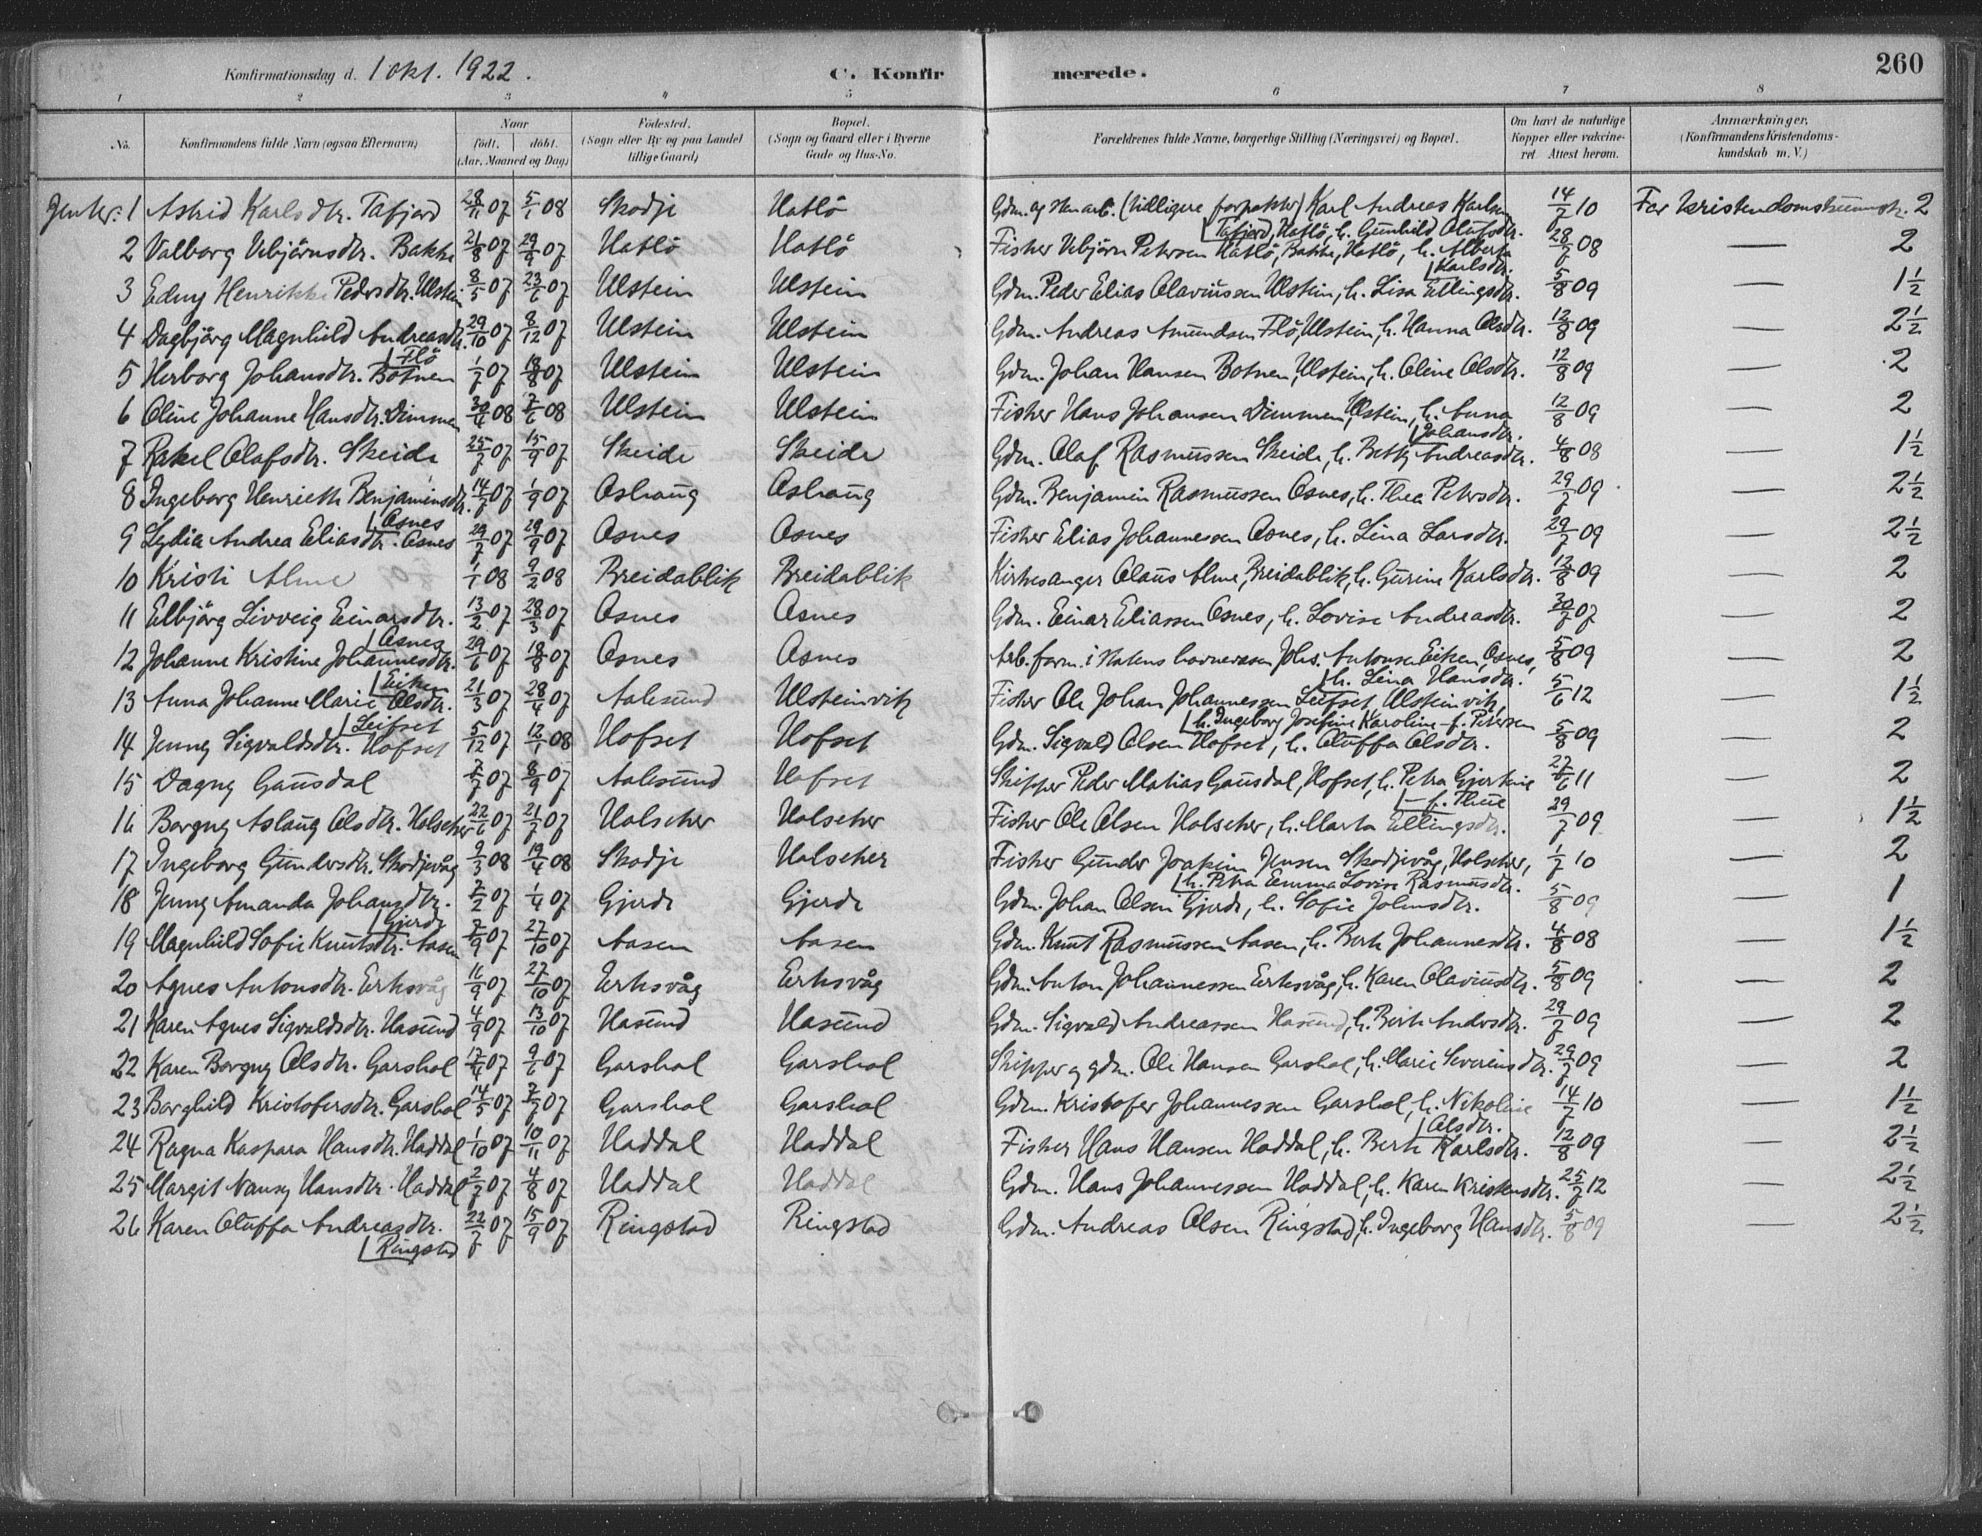 Konfirmationsdag d. 1 okt. 1922. C. Konfirmerede. 260
1 2 3 4 5 6 7 8
No. Konfirmandens fulde Navn (ogsaa Efternavn) Naar født. døbt. (Aar, Maaned og Dag) Fødested. (Sogn eller By og paa Landet tillige Gaard) Bopæl. (Sogn og Gaard eller i Byerne Gade og Hus-No. Forældrenes fulde Navne, borgerlige Stilling (Næringsvei) og Bopæl. Om havt de naturlige Kopper eller vakcineret. Attest herom. Anmærkninger. (Konfirmandens Kristendomskundskab m. V.)
Jenter: 1 Astrid Karlsdtr. Tafjord 28/11 07 5/1 08 Skodje Hatlö Gdm. og sten arb. (tidligere forpakter) Karl Andreas Karlsen 14/7 10 For kristendomskunnsk. 2
Tafjord, Hatlö, h. Gunhild Olufsdtr.
2 Valborg Vebjörnsdtr. Bakke 21/8 07 29/9 07 Hatlö Hatlö Fisker Vebjörn Petersen Hatlö, Bakke, Hatlö, h. Alberta 28/7 08 — 2
Karlsdtr.
3 Edny Henrikke Pedersdtr. Ulstein 8/5 07 23/6 07 Ulstein Ulstein Gdm. Peder Elias Olaviussen Ulstein, h. Lisa Ellingsdtr. 5/8 09 — 1½
4 Dagbjörg Magnhild Andreasdtr. 29/10 07 8/12 07 Ulstein Ulstein Gdm. Andreas Amundsen Flö, Ulstein, h. Hanna Olsdtr. 12/8 09 — 2½
Flö
5 Herborg Johansdtr. Botnen 1/7 07 18/8 07 Ulstein Ulstein Gdm. Johan Hansen Botnen, Ulstein, h. Oline Olsdtr. 12/8 09 — 2
6 Oline Johanne Hansdtr. Dimmen 30/4 08 7/6 08 Ulstein Ulstein Fisker Hans Johansen Dimmen, Ulstein, h. Anna 12/8 09 — 2
Johansdtr.
7 Rakel Olafsdtr. Skeide 25/7 07 15/9 07 Skeide Skeide Gdm. Olaf Rasmussen Skeide, h. Betty Andreasdtr. 4/8 08 — 1½
8 Ingeborg Henriette Benjaminsdtr. 14/7 07 1/9 07 Oshaug Oshaug Gdm. Benjamin Rasmussen Osnes, h. Thea Petersdtr. 29/7 09 — 2½
Osnes
9 Lydia Andrea Eliasdtr. Osnes 29/7 07 29/9 07 Osnes Osnes Fisker Elias Johannessen Osnes, h. Lina Larsdtr. 29/7 09 — 2½
10 Kristi Alme 1/1 08 9/2 08 Breidablik Breidablik Kirkesanger Olaus Alme, Breidablik, h. Gurine Karlsdtr. 12/8 09 — 2
11 Elbjörg Livveig Einarsdtr. 13/2 07 28/3 07 Osnes Osnes Gdm. Einar Eliassen Osnes, h. Lovise Andreasdtr. 30/7 07 — 2
Osnes
12 Johanne Kristine Johannesdtr. 29/6 07 18/8 07 Osnes Osnes Arb. form. i Statens havnevesen Johs. Antonsen Eiken, Osnes, 5/8 09 — 2
Eiken h. Lina Hansdtr.
13 Anna Johanne Marie Olsdtr. 21/3 07 28/4 07 Aalesund Ulsteinvik Fisker Ole Johan Johannessen Leifset, Ulsteinvik, 5/6 12 — 1½
Leifset h. Ingeborg Josefine Karoline f. Petersen
14 Jenny Sigvaldsdtr. Hofset 5/12 07 12/1 08 Hofset Hofset Gdm. Sigvald Olsen Hofset, h. Oluffa Olsdtr. 5/8 09 — 2
15 Dagny Gausdal 7/7 07 8/9 07 Aalesund Hofset Skipper Peder Matias Gausdal, Hofset, h. Petra Gjertine 27/6 11 — 2
— f. Thue
16 Borgny Aslaug Olsdtr. Holseker 22/6 07 21/7 07 Holseker Holseker Fisker Ole Olsen Holseker, h. Marta Ellingsdtr. 29/7 09 — 1½
17 Ingeborg Gundersdtr. Skodjevåg 9/3 08 19/4 08 Skodje Holseker Fisker Gunder Joakim Jensen Skodjevåg, Holseker, 1/7 10 — 2
h. Petra Emma Lovise Rasmusdtr.
18 Jenny Amanda Johansdtr. 7/2 07 1/4 07 Gjerde Gjerde Gdm. Johan Olsen Gjerde, h. Sofie Johnsdtr. 5/8 09 — 1
Gjerde
19 Magnhild Sofie Knutsdtr. Aasen 7/9 07 27/10 07 Aasen Aasen Gdm. Knut Rasmussen Aasen, h. Berte Johannesdtr. 4/8 08 — 1½
20 Agnes Antonsdtr. Eriksvåg 16/9 07 27/10 07 Eriksvåg Eriksvåg Gdm. Anton Johannessen Eriksvåg, h. Karen Olaviusdtr. 5/8 09 — 2
21 Karen Agnes Sigvaldsdtr. Hasund 4/9 07 13/10 07 Hasund Hasund Gdm. Sigvald Andreassen Hasund, h. Berte Andersdtr. 29/7 09 — 2
22 Karen Borgny Olsdtr. Garshol 17/4 07 9/6 07 Garshol Garshol Skipper og gdm. Ole Hansen Garshol, h. Marie Severinsdtr. 29/7 09 — 2
23 Borghild Kristofersdtr. Garshol 14/5 07 7/7 07 Garshol Garshol Gdm. Kristofer Johannessen Garshol, h. Nikoline 14/7 10 — 1½
Olsdtr.
24 Ragna Kaspara Hansdtr. Haddal 1/10 07 10/11 07 Haddal Haddal Fisker Hans Hansen Haddal, h. Berte Karlsdtr. 12/8 09 — 2½
25 Margit Nansy Hansdtr. Haddal 2/7 07 4/8 07 Haddal Haddal Gdm. Hans Johannessen Haddal, h. Karen Kristensdtr. 25/7 12 — 2½
26 Karen Oluffa Andreasdtr. 22/7 07 15/9 07 Ringstad Ringstad Gdm. Andreas Olsen Ringstad, h. Ingeborg Hansdtr. 5/8 09 — 2½
Ringstad